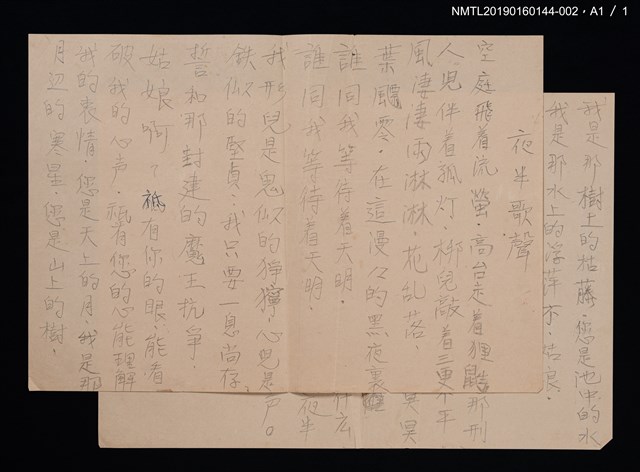 夜半歌聲
空庭飛着流螢。高台走着狸鼪
人兒伴着孤灯。梆兒敲着三更
風凄凄雨淋淋。花乱落。
葉飄零。在這漫々的黑夜裏
誰同我等待着天明。
誰同我等待着天明。
我形兒是鬼似的猙獰。心兒是
鉄似的堅貞。我只要一息尚存
誓和那封建的魔王抗爭。
姑娘啊！祗有你的眼。能看
破我的心声。祗有您的心能理解
我的表情。您是天上的月。我是那
月辺的寒星。您是山上的樹。
我是那樹上的枯藤。您是池中的水
我是那水上的浮萍不。姑良。
那刑
不平
冥冥
夜半
NMTL20190160144-002，A1 / 1